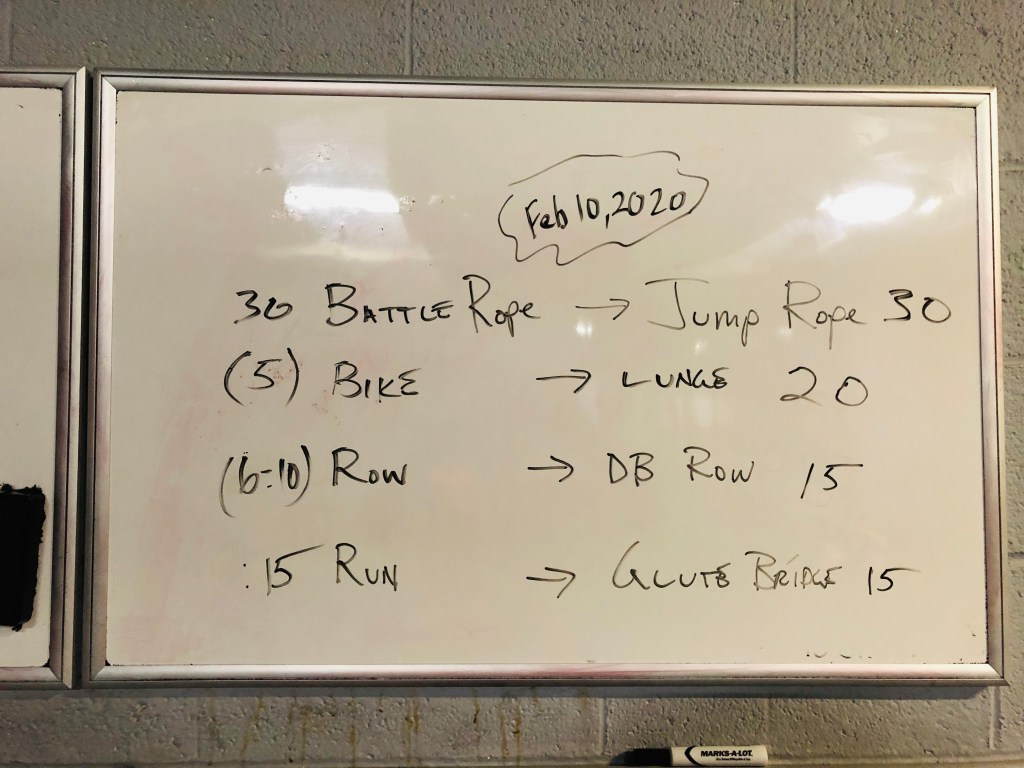 Feb 10, 2020
30 BATTLE Rope → Jump Rope 30
(5) BIKE → LUNGE 20
(6-10) Row → DB Row 15
:15 RUN → GLUTE BRIDGE 15
MARKS-A-LOT